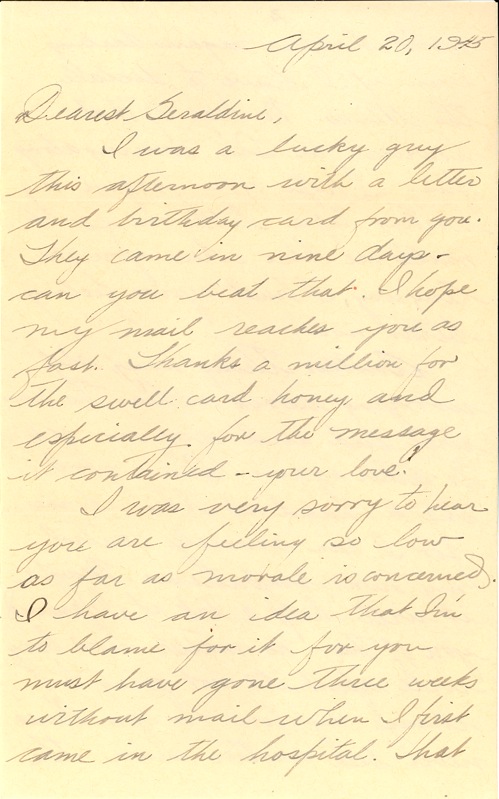 April 20, 1945
Dearest Geraldine,
I was a lucky guy
this afternoon with a letter
and birthday card from you.
They came in nine days -
can you beat that. I hope
my mail reaches you as
fast. Thanks a million for
the swell card honey and
especially for the message
it contained - your love!
I was very sorry to hear
you are feeling so low
as far as morale is concerned.
I have an idea that I'm
to blame for it for you
must have gone three weeks
without mail when I first
came in the hospital. That